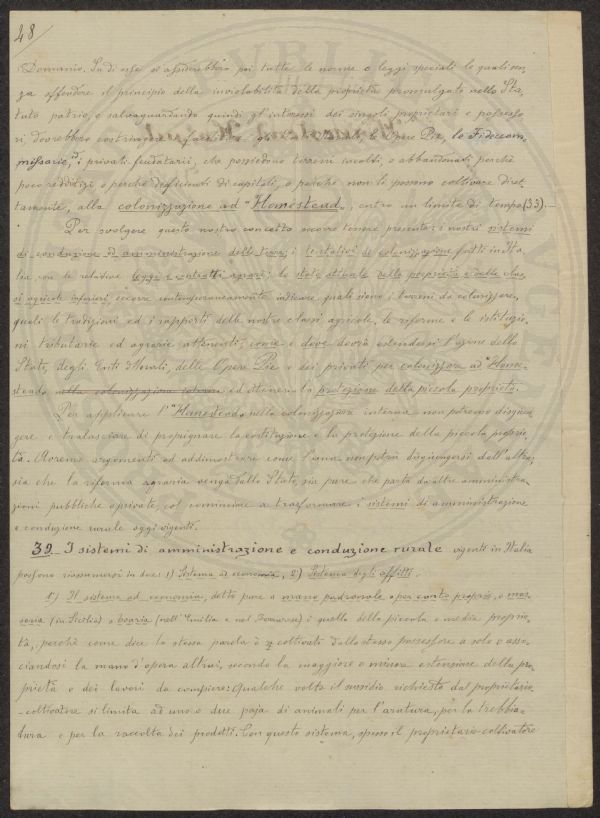 48/
Demanio. Su di esse si assiderebbero poi tutte le norme e leggi speciali le quali sen-
za offendere il principio della inviolabilità della proprietà promulgato nello Sta-
tuto patrio, e salvaguardando quindi gl'interessi dei singoli proprietari e possesso-
ri dovrebbero costringere le Opere Pie, le Fidecom-
missarie, i privati feudatarii, che possiedono terreni incolti o abbandonati perchè
poco redditizi o perchè deficienti di capitali, o poichè non li possono coltivare diret-
tamente, alla colonizzazione ad "Homestead", entro un limite di tempo (33).-
Per svolgere questo nostro concetto occorre tenere presenti: i nostri sistemi
di conduzione ed amministrazione delle terre; i tentativi di colonizzazione fatti in Ita-
lia con le relative leggi e contratti agrari; lo stato attuale della proprietà e delle clas-
si agricole inferiori; occorre contemporaneamente indicare quali siano i terreni da colonizzare,
quali le tradizioni ed i rapporti delle nostre classi agricole, le riforme e le istituzio-
ni tributarie ed agrarie attinenti, come e dove dovrà estendersi l'azione dello
Stato, degli Enti Morali, delle Opere Pie e dei privati per colonizzare ad "Home-
stead" alla colonizzazione interna ed ottenere la protezione della piccola proprietà.
Per applicare l'"Homestead" nella colonizzazione interna non potremo disgiun-
gere e tralasciare di propugnare la costituzione e la protezione della piccola proprie-
tà. Avremo argomenti ad addimostrare come l'una non potrà disgiungersi dall'altra,
sia che la riforma agraria venga dallo Stato, sia pure che parta da altre amministra-
zioni pubbliche o private, col cominciare a trasformare i sistemi di amministrazione
e conduzione rurale oggi vigenti.
39. I sistemi di amministrazione e conduzione rurale vigenti in Italia
possono riassumersi in due: 1) Sistema ad economia, 2) Sistema degli affitti.
1º) Il sistema ad economia, detto pure a mano padronale o per conto proprio, o mas-
seria (in Sicilia) o boaria (nell'Emilia e nel Ferrarese) è quello della piccola e media proprie-
tà, perchè come dice la stessa parola è coltivato dallo stesso possessore a solo o asso-
ciandosi la mano d'opera altrui, secondo la maggiore o minore estensione della pro-
prietà o dei lavori da compiere: Qualche volta il sussidio richiesto dal proprietario
-coltivatore si limita ad uno o due paja di animali per l'aratura, per la trebbia-
tura e per la raccolta dei prodotti. Con questo sistema, spesso il proprietario-coltivatore